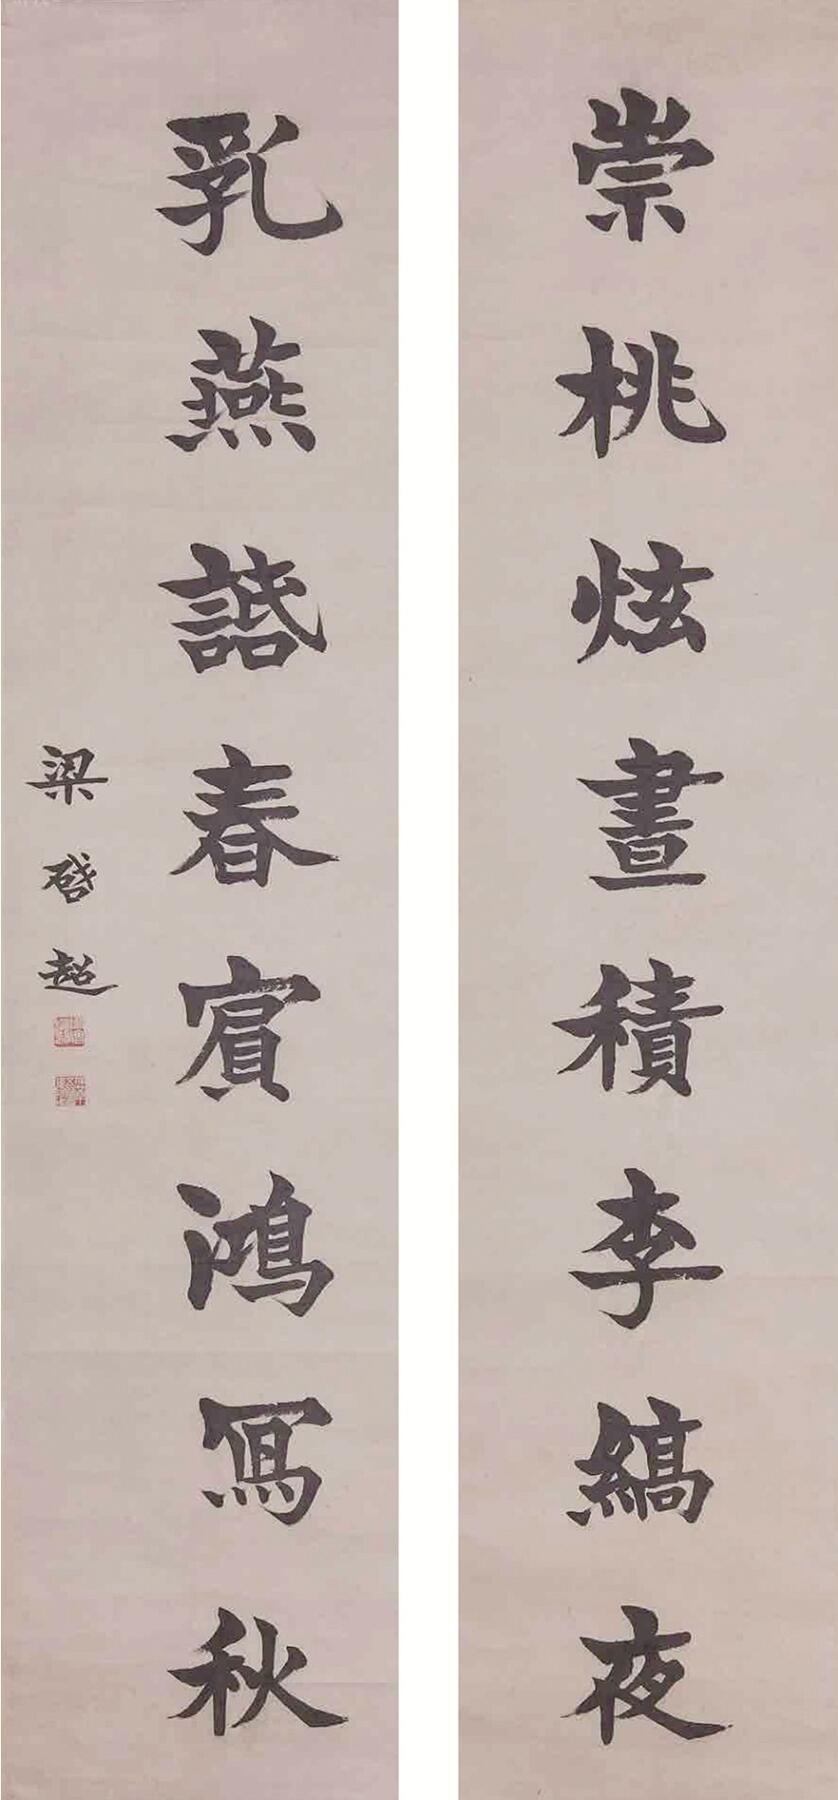 崇桃炫晝積李縞夜
乳燕諾春賓鴻冩秋
梁啓超